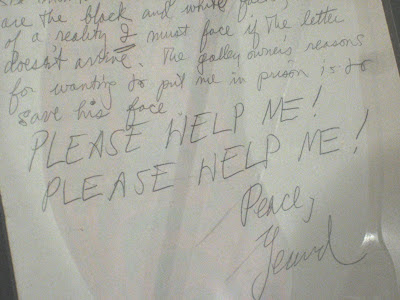 are the black and white facts
of a reality I must face if the letter
doesn't arrive. The galley owner's reasons
for wanting to put me in prison is to
save his face.
PLEASE HELP ME!
PLEASE HELP ME!
Peace,